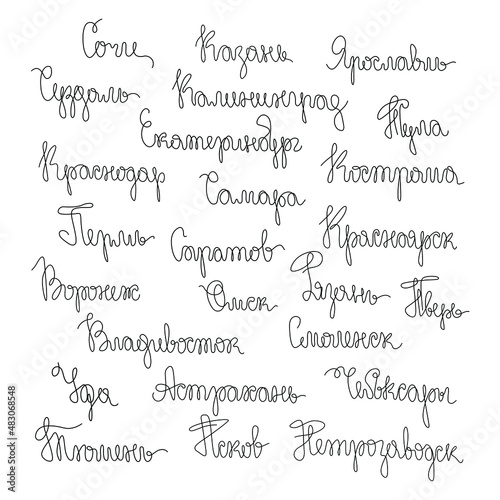 Сочи Казань Ярославль
Суздаль Калининград
Тула
Екатеринбург
Краснодар Кострома
Самара
Пермь Саратов Красноярск
Воронеж Омск Рязань Тверь
Владивосток Смоленск
Уфа Астрахань Чебоксары
Тюмень Псков Петрозаводск
Adobe Stock | #483068548